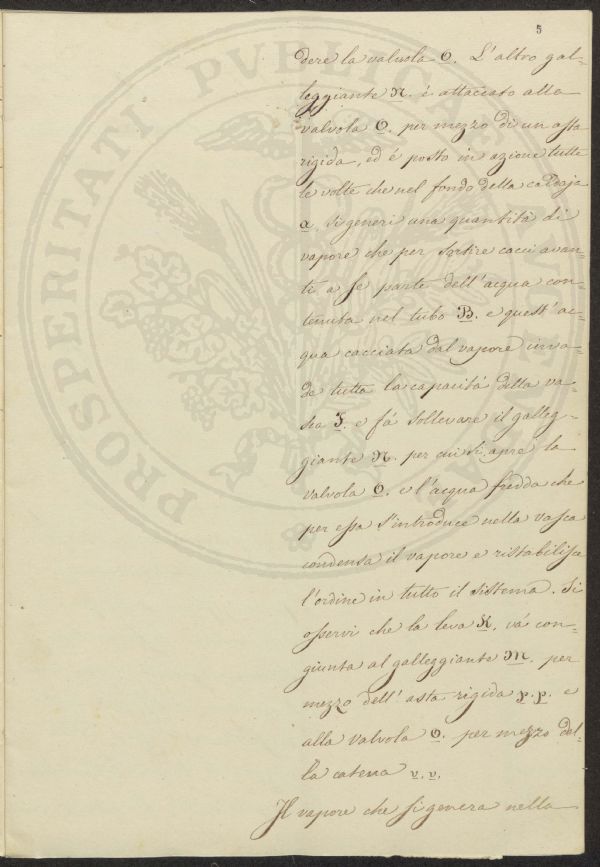 5
dere la valvola O. L'altro gal=
leggiante N. è attaccato alla
valvola O. per mezzo di un asta
rigida, ed é posto in azione tutte
le volte che nel fondo della caldaja
a. si generi una quantità di
vapore che per sortire cacci avan=
ti a se parte dell'acqua con=
tenuta nel tubo B. e quest'ac=
qua cacciata dal vapore inva=
de tutta la capacità della va=
sca I. e fá sollevare il galleg=
giante N. per cui si apre la
valvola O. e l'acqua fredda che
per essa s'introduce nella vasca
condensa il vapore e ristabilisce
l'ordine in tutto il sistema. Si
osservi che la leva K. vá con=
giunta al galleggiante M. per
mezzo dell'asta rigida p.p. e
alla valvola O. per mezzo del=
la catena v.v.
Il vapore che si genera nella
PROSPERITATI PVBLICAE